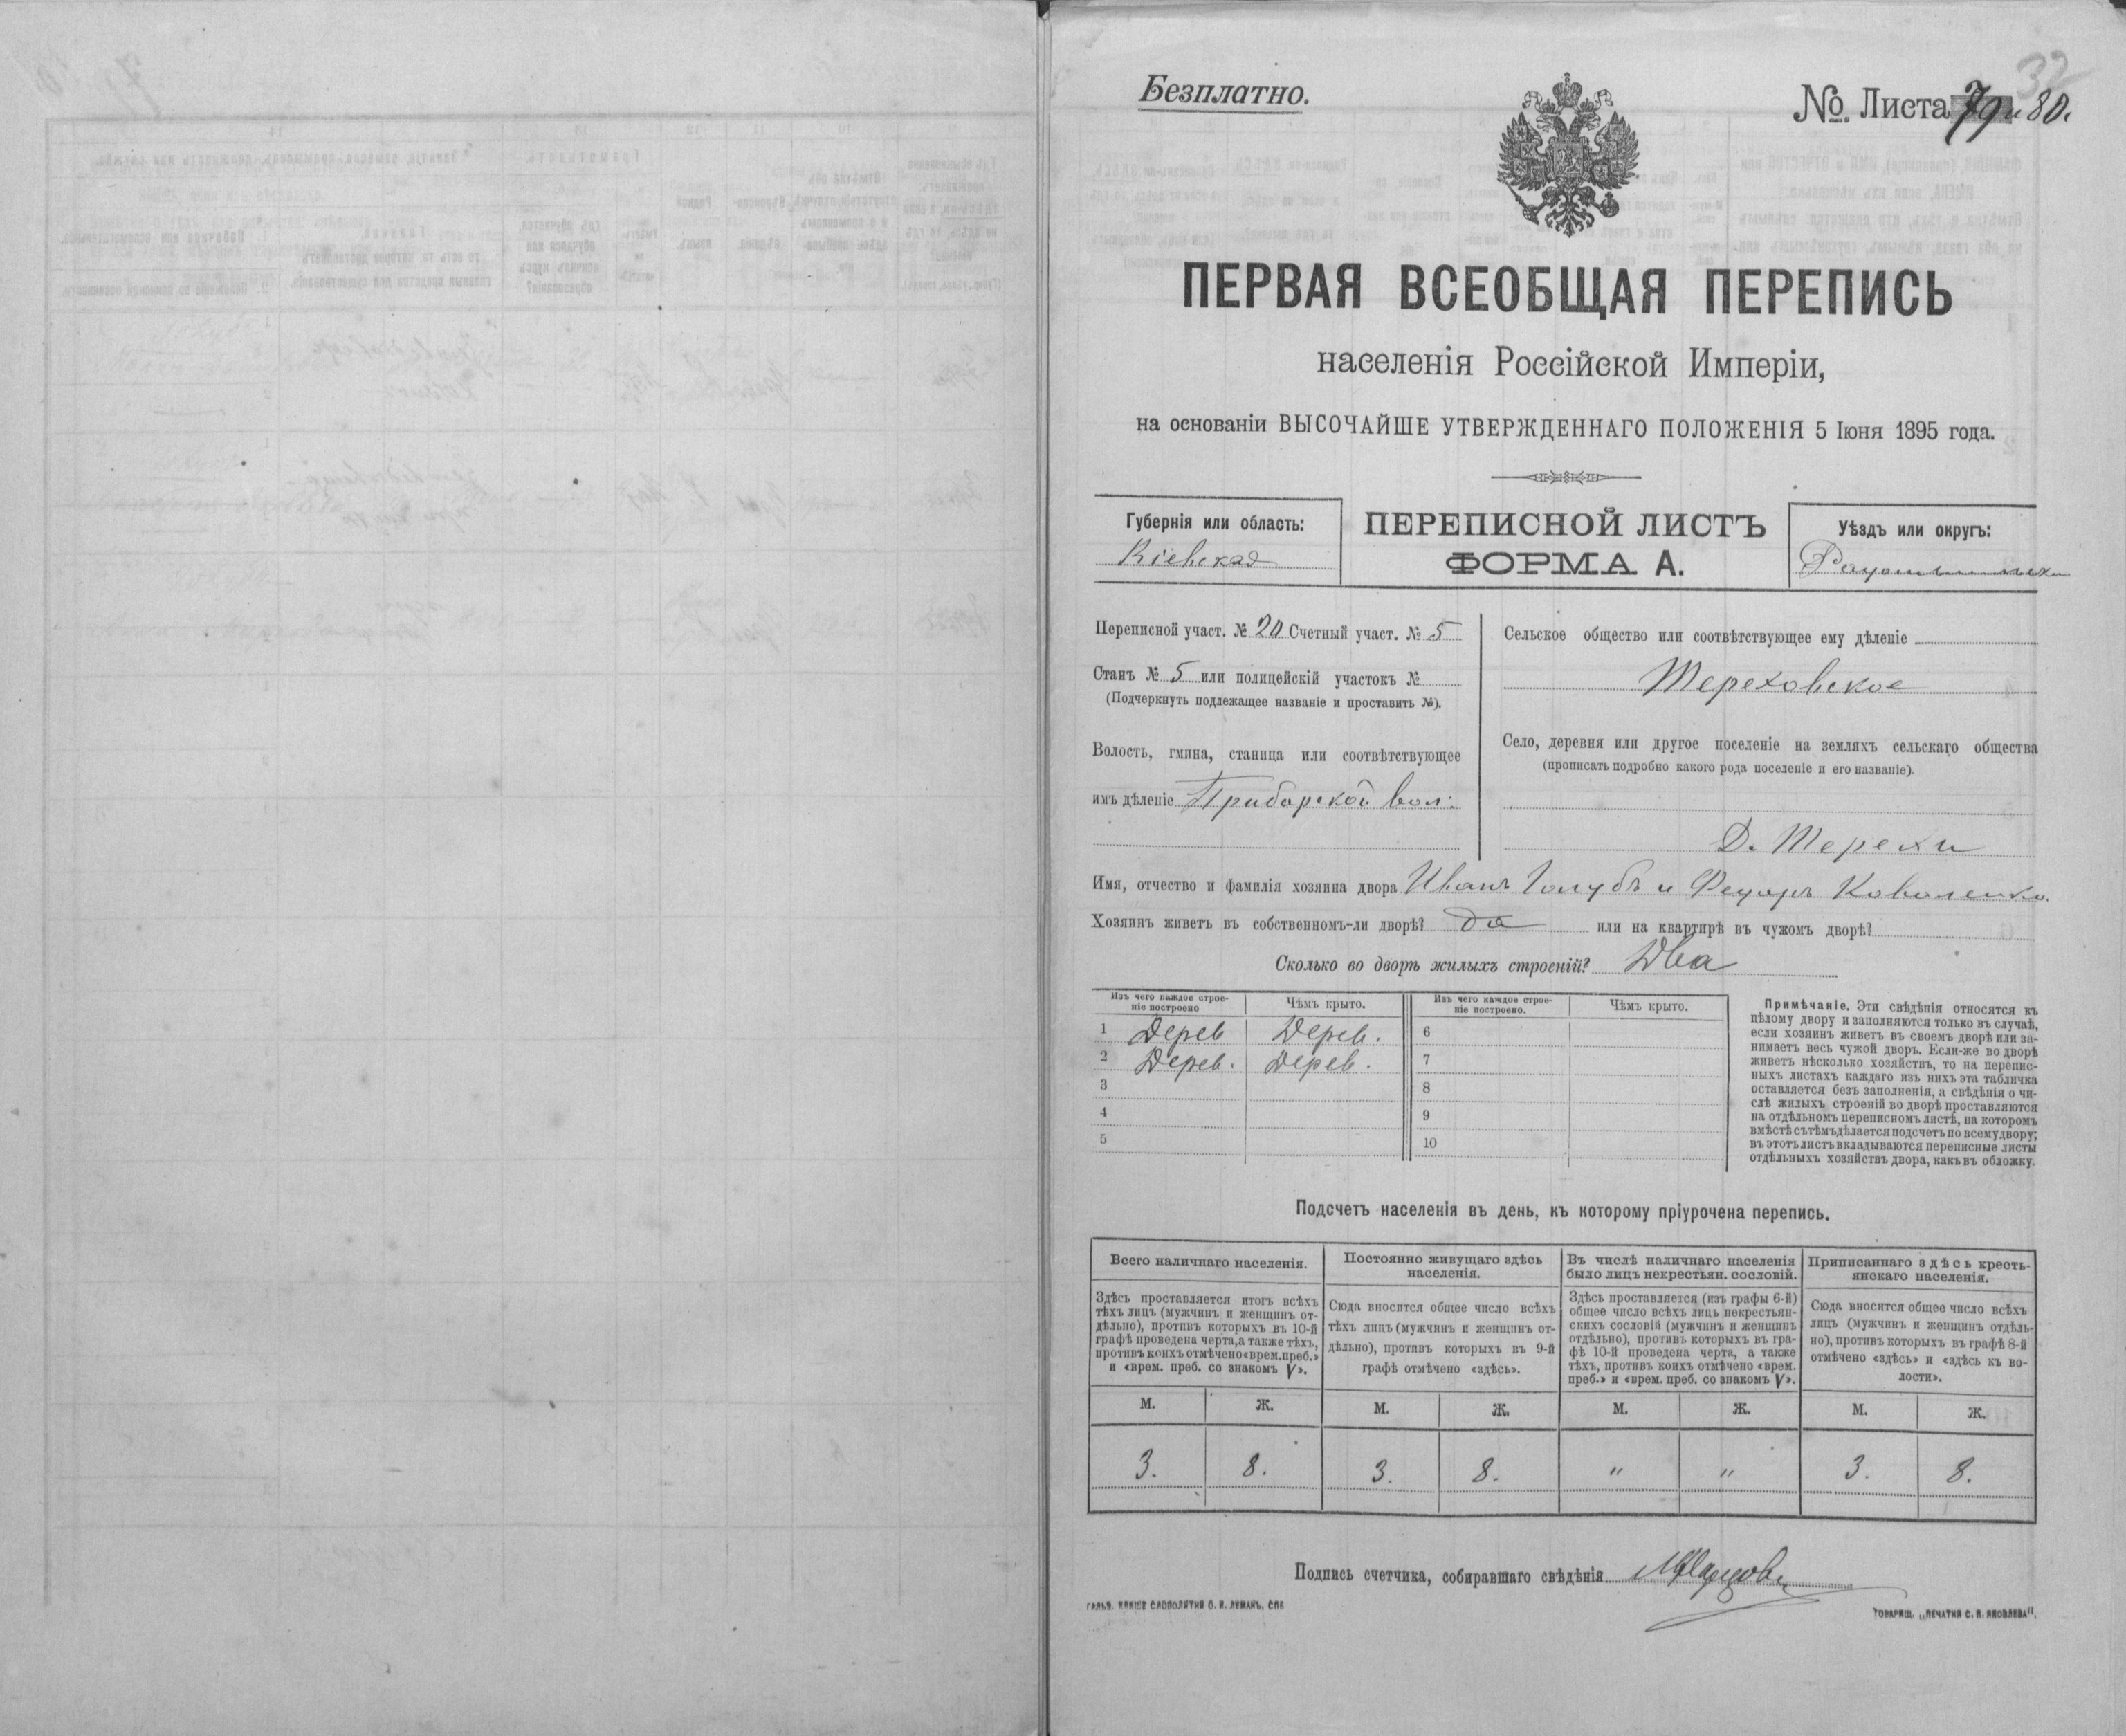 32
Безплатно.
№ Листа 79 и 80.
ПЕРВАЯ ВСЕОБЩАЯ ПЕРЕПИСЬ
населенія Россійской Имперіи,
на основаніи ВЫСОЧАЙШЕ УТВЕРЖДЕННАГО ПОЛОЖЕНІЯ 5 Іюня 1895 года.
Губернія или область:
Кіевская
ПЕРЕПИСНОЙ ЛИСТЪ
ФОРМА А.
Уѣздъ или округъ:
Переписной участ. № 20 Счетный участ. № 5
Станъ № 5 или полицейскій участокъ №
(Подчеркнуть подлежащее названіе и проставить №).
Волость, гмина, станица или соотвѣтствующее
имъ дѣленіе Прибарской вол:
Сельское общество или соотвѣтствующее ему дѣленіе
Тереховское
Село, деревня или другое поселеніе на земляхъ сельскаго общества
(прописать подробно какого рода поселеніе и его названіе).
Д. Терехи
Имя, отчество и фамилія хозяина двора Иванъ Голубъ и Федоръ Коваленко.
Хозяинъ живетъ въ собственномъ-ли дворѣ? да или на квартирѣ въ чужомъ дворѣ?
Сколько во дворѣ жилыхъ строеній? Два
Изъ чего каждое строе-
ніе построено
Чѣмъ крыто.
Изъ чего каждое строе-
ніе построено.
Чѣмъ крыто.
1 Дерев Дерев. 6
2 Дерев. Дерев. 7
3 8
4 9
5 10
Примѣчаніе. Эти свѣдѣнія относятся къ
цѣлому двору и заполняются только въ случаѣ,
если хозяинъ живетъ въ своемъ дворѣ или за-
нимаетъ весь чужой дворъ. Если-же во дворѣ
живетъ нѣсколько хозяйствъ, то на перепис-
ныхъ листахъ каждаго изъ нихъ эта табличка
оставляется безъ заполненія, а свѣдѣнія о чи-
слѣ жилыхъ строеній во дворѣ проставляются
на отдѣльномъ переписномъ листѣ, на которомъ
вмѣстѣ съ тѣмъ дѣлается подсчетъ по всему двору;
въ этотъ листъ вкладываются переписные листы
отдѣльныхъ хозяйствъ двора, какъ въ обложку.
Подсчетъ населенія въ день, къ которому пріурочена перепись.
Всего наличнаго населенія.
Здѣсь проставляется итогъ всѣхъ
тѣхъ лицъ (мужчинъ и женщинъ от-
дѣльно), противъ которыхъ въ 10-й
графѣ проведена черта, а также тѣхъ,
противъ коихъ отмѣчено «врем. преб.»
и «врем. преб. со знакомъ V».
Постоянно живущаго здѣсь
населенія.
Сюда вносится общее число всѣхъ
тѣхъ лицъ (мужчинъ и женщинъ от-
дѣльно), противъ которыхъ въ 9-й
графѣ отмѣчено «здѣсь».
Въ числѣ наличнаго населенія
было лицъ некрестьян. сословій.
Здѣсь проставляется (изъ графы 6-й)
общее число всѣхъ лицъ некрестьян-
скихъ сословій (мужчинъ и женщинъ
отдѣльно), противъ которыхъ въ гра-
фѣ 10-й проведена черта, а также
тѣхъ, противъ коихъ отмѣчено «врем.
преб.» и «врем. преб. со знакомъ V».
Приписаннаго здѣсь кресть-
янскаго населенія.
Сюда вносится общее число всѣхъ
лицъ (мужчинъ и женщинъ отдѣль-
но), противъ которыхъ въ графѣ 8-й
отмѣчено «здѣсь» и «здѣсь къ во-
лости».
М. Ж. М. Ж. М. Ж. М. Ж.
3. 8. 3. 8. " " 3. 8.
Подпись счетчика, собиравшаго свѣдѣнія
ГАЛЬВ. КЛИШЕ СЛОВОЛИТНИ О. И. ЛЕМАНЪ, СПБ
ТОВАРИЩ. „ПЕЧАТНЯ С. П. ЯКОВЛЕВА".